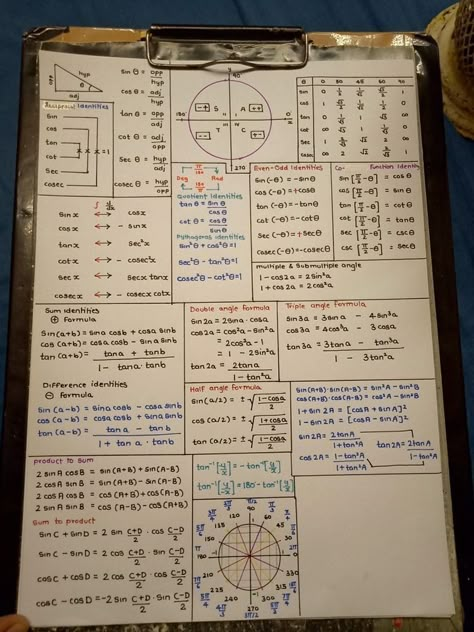 opp
hyp
adj
sin θ = opp/hyp
cos θ = adj/hyp
tan θ = opp/adj
cot θ = adj/opp
sec θ = hyp/adj
cosec θ = hyp/opp
Reciprocal Identities
sin
cos
tan
cot
sec
cosec
x = 1
y
90
180°
0
x
270
S
A
T
C
θ 0 30 45 60 90
sin 0 1/2 1/√2 √3/2 1
cos 1 √3/2 1/√2 1/2 0
tan 0 1/√3 1 √3 ∞
cot ∞ √3 1 1/√3 0
sec 1 2/√3 √2 2 ∞
cosec ∞ 2 √2 2/√3 1
∫ d/dx
sinx ↔ cosx
cosx ↔ - sinx
tanx ↔ sec²x
cotx ↔ - cosec²x
secx ↔ secx tanx
cosecx ↔ - cosecx cotx
π/180
Deg Rad
180/π
Quotient Identities
tan θ = sin θ/cos θ
cot θ = cos θ/sin θ
Pythagoras identities
sin²θ + cos²θ = 1
sec²θ - tan²θ = 1
cosec²θ - cot²θ = 1
Even-Odd Identities
sin (-θ) = -sin θ
cos (-θ) = +cos θ
tan (-θ) = -tan θ
cot (-θ) = -cot θ
sec (-θ) = +sec θ
cosec (-θ) = -cosec θ
Co- Function Identity
sin [π/2 - θ] = cos θ
cos [π/2 - θ] = sin θ
tan [π/2 - θ] = cot θ
cot [π/2 - θ] = tan θ
sec [π/2 - θ] = csc θ
csc [π/2 - θ] = sec θ
multiple & Submultiple angle
1 - cos2a = 2sin²a
1 + cos2a = 2cos²a
Sum identities
⊕ Formula
Sin(a+b) = sina cosb + cosa sinb
cos (a+b) = cosa cosb - sina sinb
tan (a+b) = tana + tanb / 1 - tana·tanb
Double angle Formula
sin2a = 2sina·cosa
cos2a = cos²a - sin²a
= 2cos²a - 1
= 1 - 2sin²a
tan2a = 2tana / 1 - tan²a
Triple angle Formula
sin3a = 3sina - 4sin³a
cos3a = 4cos³a - 3cosa
tan3a = 3tana - tan³a / 1 - 3tan²a
Difference identities
⊖ Formula
sin (a-b) = sina cosb - cosa sinb
cos (a-b) = cosa cosb + sina sinb
tan (a-b) = tana - tanb / 1 + tana·tanb
Half angle Formula
sin(a/2) = ± √(1-cosa/2)
cos(a/2) = ± √(1+cosa/2)
tan(a/2) = ± √(1-cosa/1+cosa)
sin(A+B)·sin(A-B) = sin²A - sin²B
cos(A+B)·cos(A-B) = cos²A - sin²B
1 + sin2A = [cosA + sinA]²
1 - sin2A = [cosA - sinA]²
sin2A = 2tanA / 1+tan²A
tan2A = 2tanA / 1-tan²A
cos2A = 1-tan²A / 1+tan²A
product to sum
2 sinA cosB = sin(A+B) + sin(A-B)
2 cosA sinB = sin(A+B) - sin(A-B)
2 cosA cosB = cos(A+B) + cos(A-B)
Sum to product
sinC + sinD = 2 sin C+D/2 · cos C-D/2
sinC - sinD = 2 cos C+D/2 · sin C-D/2
cosC + cosD = 2 cos C+D/2 · cos C-D/2
cosC - cosD = -2 sin C+D/2 · sin C-D/2